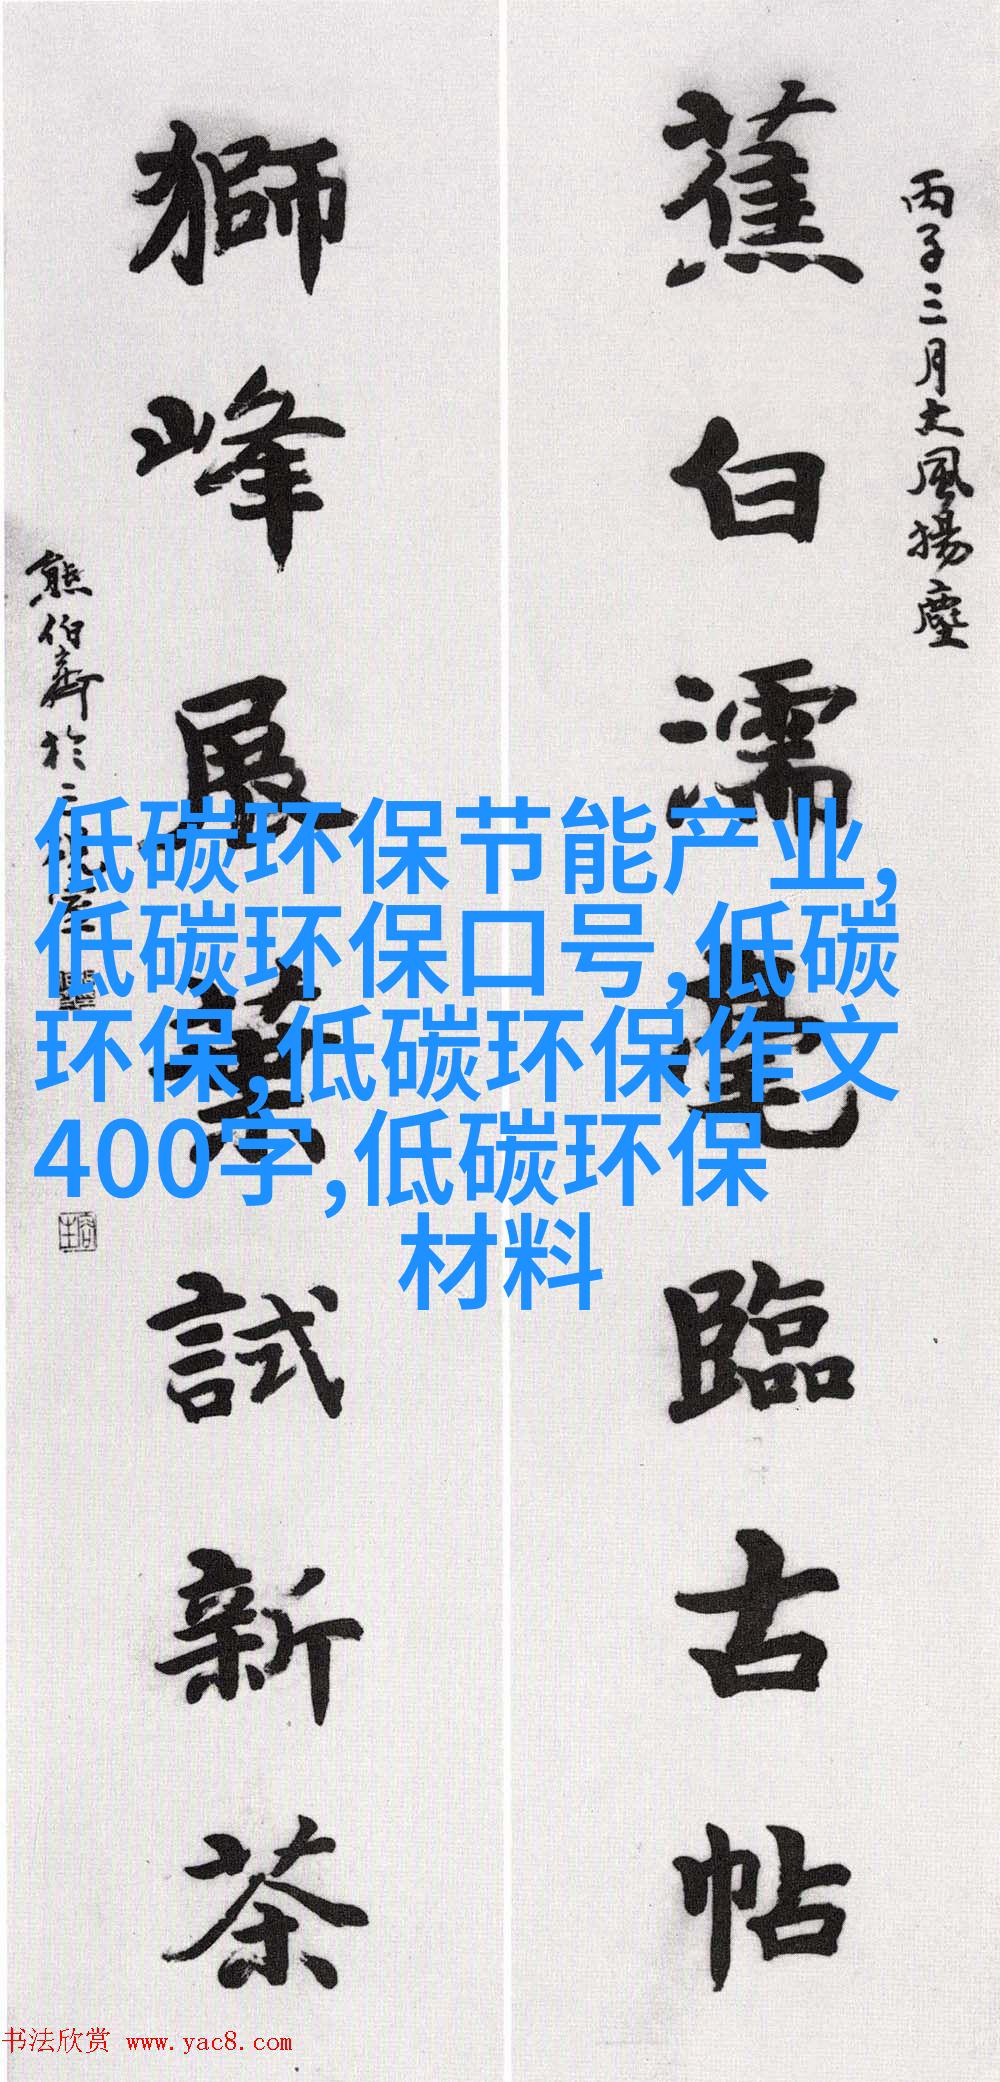 丙子三月大風揚塵
蕉白濡毫臨古帖
獅峰展葉試新茶
熊伯齊於二
低碳环保节能产业,
低碳环保口号,低碳
环保,低碳环保作文
400字,低碳环保
材料
书法欣赏 www.yac8.com